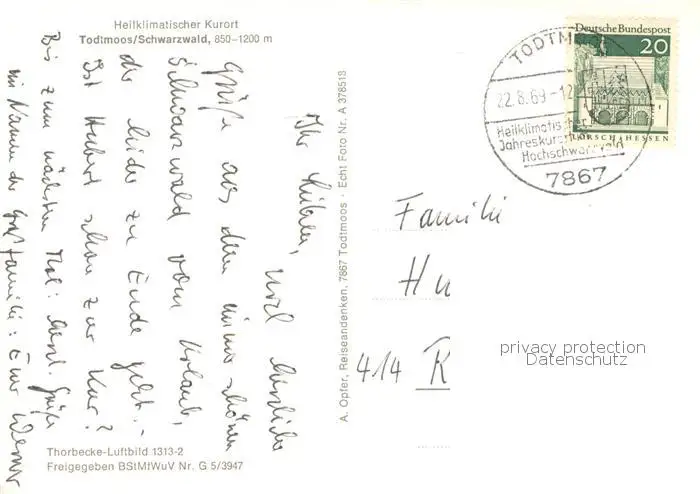 Heilklimatischer Kurort
Todtmoos/Schwarzwald, 850–1200 m
Ihr Lieben, viel herzliche
Grüße aus dem immer schönen
Schwarzwald vom Urlaub,
der leider zu Ende geht.
Ist Hubert schon zur Kur?
Bis zum nächsten Mal: herzl. Grüße
im Namen der Großfamilie: Euer Werner
Thorbecke-Luftbild 1313-2
Freigegeben BStMfWuV Nr. G 5/3947
A. Opfer, Reiseandenken, 7867 Todtmoos · Echt Foto Nr. A 378513
Deutsche Bundespost
20
LORSCH-HESSEN
TODTMOOS
22.8.69-12
Heilklimatischer
Jahreskurort
Hochschwarzwald
7867
Familie
Hu
414 K
privacy protection
Datenschutz